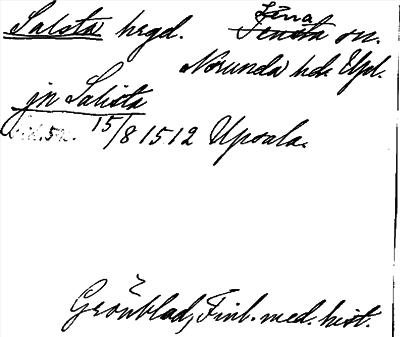 Salsta hrgd. Tensta sn.
Lena
Norunda hd. Upl.
jn Salista
15/8 1512 Upsala.
Grönblad, Finl. med. hist.